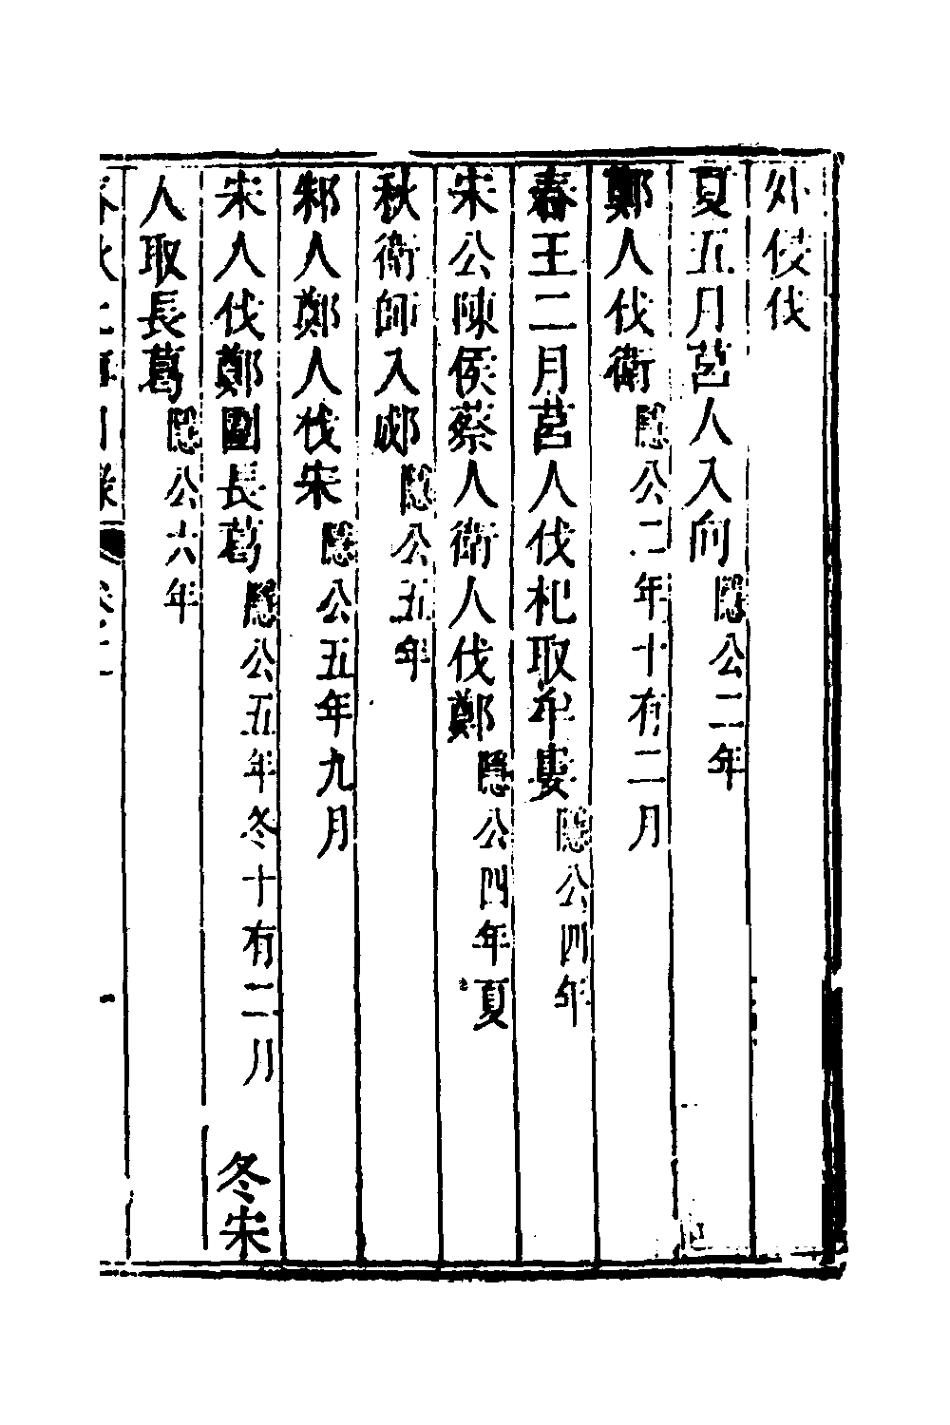 外侵伐
夏五月莒人入向隱公二年
鄭人伐衛隱公二年十有二月
春王二月莒人伐杞取牟婁隱公四年
宋公陳侯蔡人衛人伐鄭隱公四年夏
秋衛師入郕隱公五年
邾人鄭人伐宋隱公五年九月
宋人伐鄭圍長葛隱公五年冬十有二月 冬宋
人取長葛隱公六年